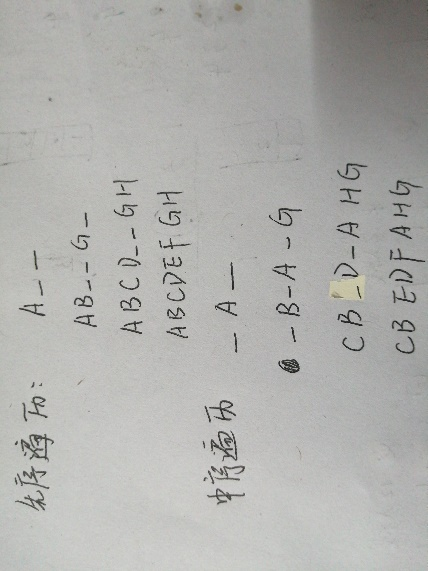 先序遍历: A _ _
AB _ _ G _
ABCD _ _ GH
ABCDEFGH
中序遍历 _ A _
_ B _ A _ G
CB _ D _ A HG
CB EDF AHG